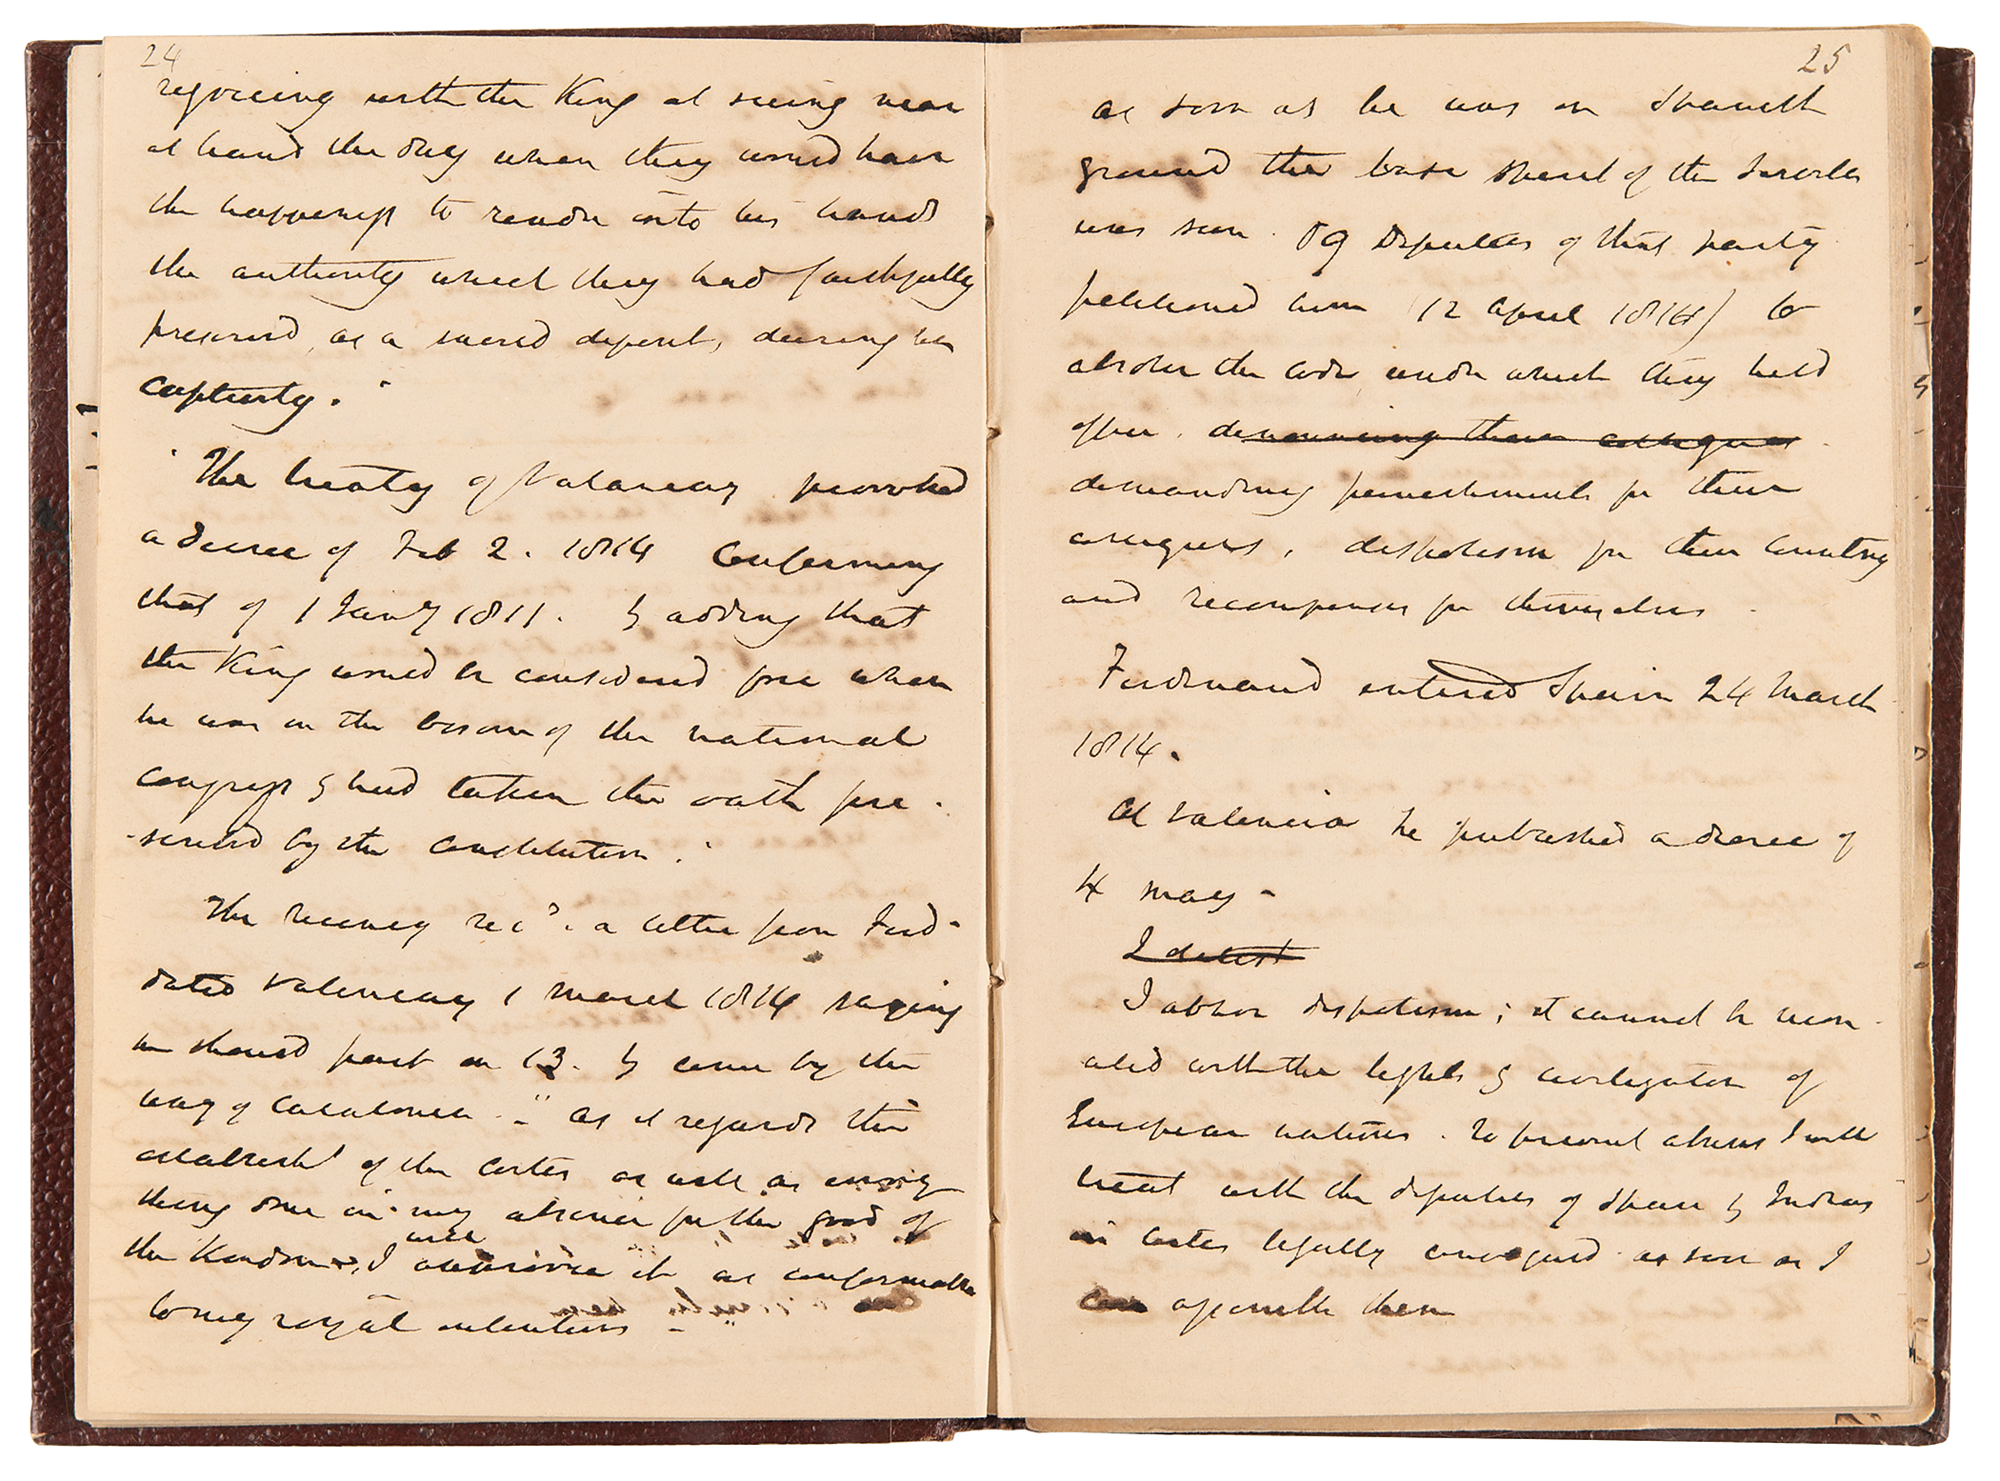 24
rejoicing with the King at seeing near
at hand the day when they would have
the happiness to render into his hands
the authority which they had faithfully
preserved, as a sacred deposit, during his
captivity."
"The treaty of Valencay provoked
a decree of Feb 2. 1814 confirming
that of 1 Jany 1811. & adding that
the King would be considered free when
he was in the bosom of the national
congress & had taken the oath pre-
-scribed by the constitution."
The regency recd. a letter from Ferd-
dated Valencay 1 March 1814 saying
he should part on 13. & come by the
way of Catalonia - "as it regards the
establisht of the cortes as well as every
thing done in my absence for the good of
will
the Kingdom, I it as conformable
to my royal intentions - "
25
as soon as he was on Spanish
ground the base spirit of the Serviles
was seen. 69 Deputies of that party
petitioned him (12 April 1814) to
abolish the code under which they held
office. denouncing their collegues
demanding punishments for their
collegues, despotism for their country
and recompenses for themselves.
Ferdinand entered Spain 24 March
1814.
At Valencia he published a decree of
4 May -
I detest
I abhor despotism; it cannot be recon-
ciled with the lights & civilization of
European nations. To prevent abuses I will
treat with the deputies of Spain & Indias
in Cortes legally convoqued as soon as I
can assemble them